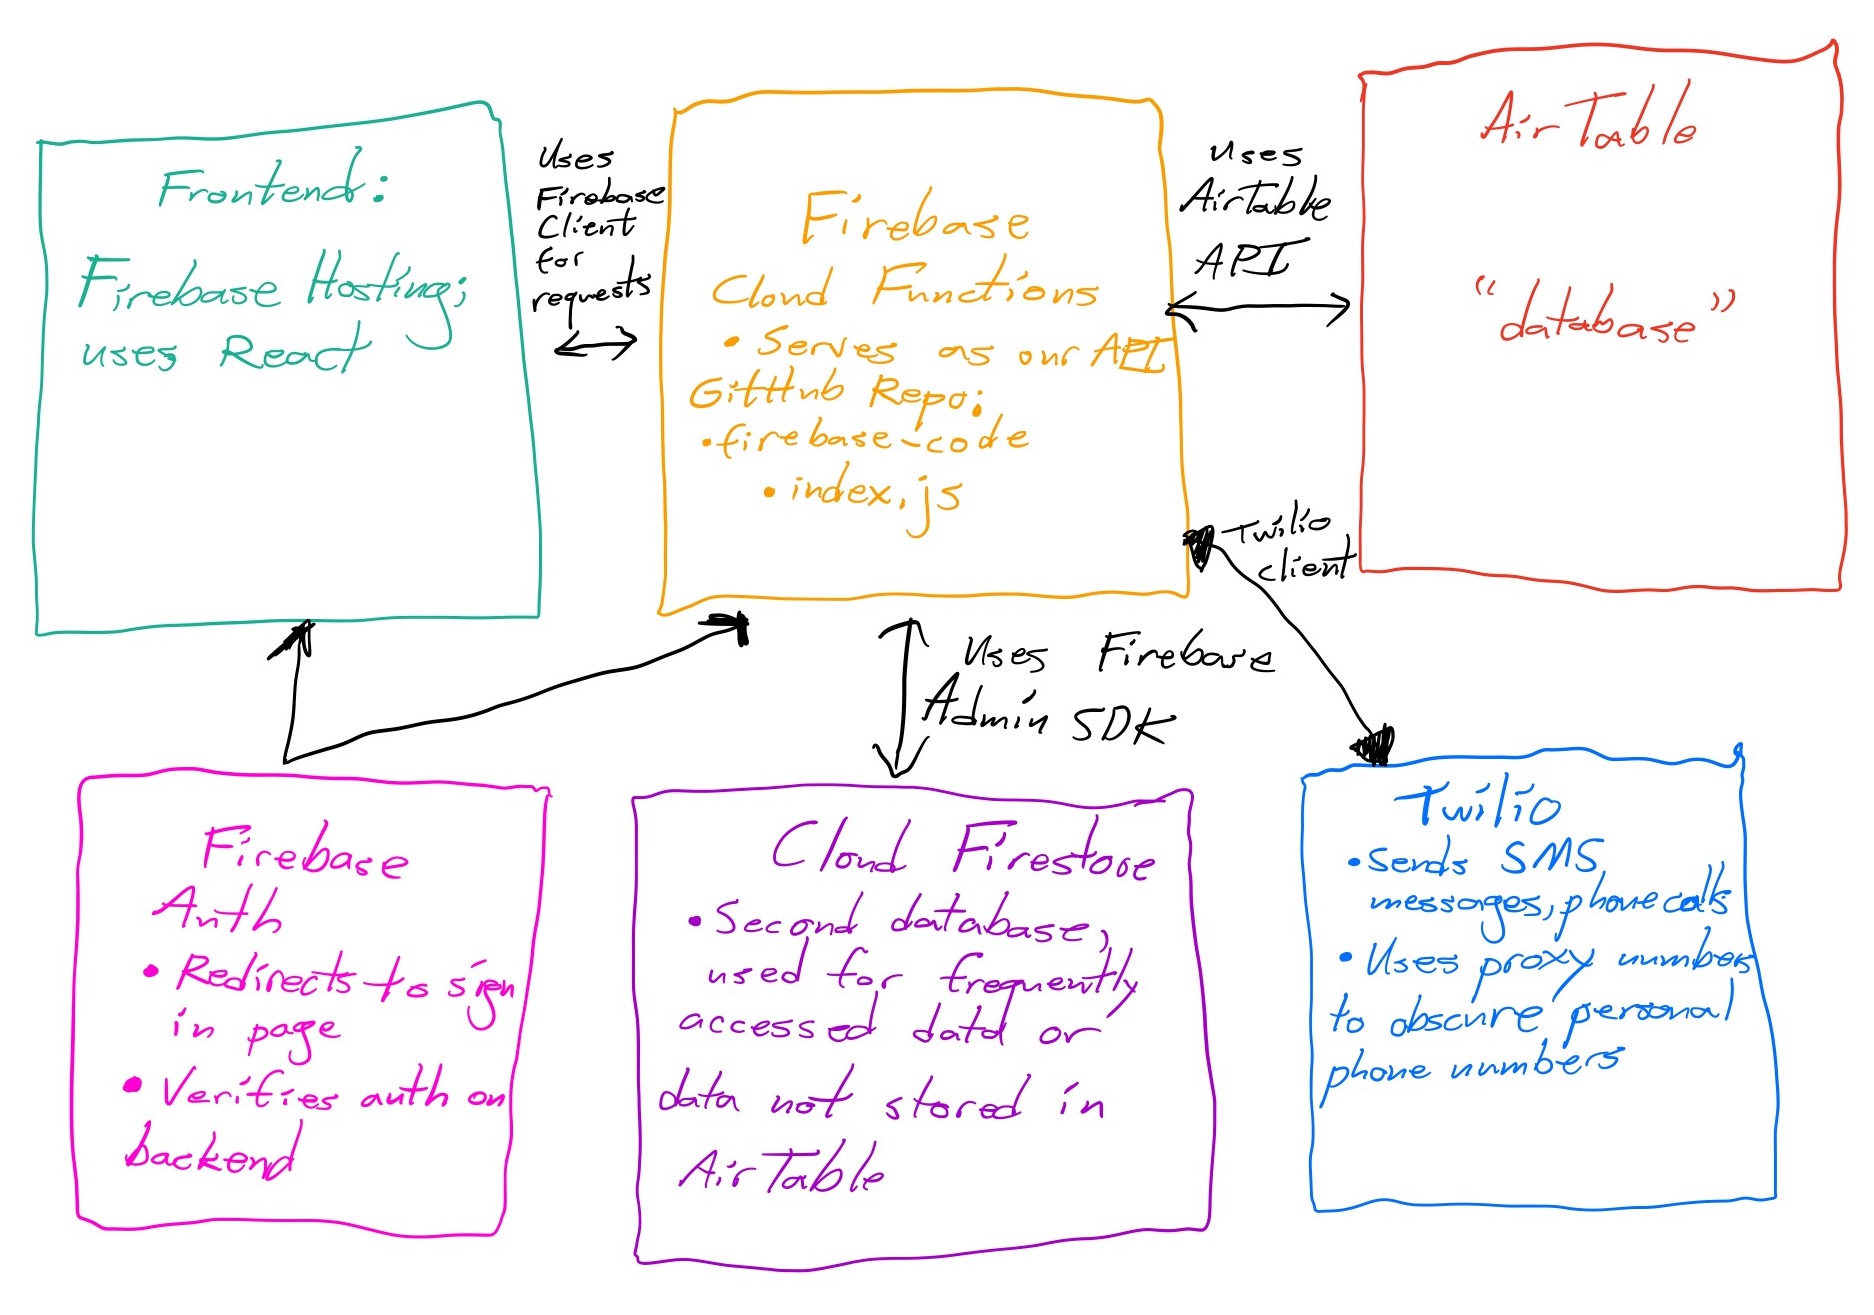 Frontend:
Firebase Hosting;
uses React
Uses
Firebase
Client
for
requests
Firebase
Cloud Functions
• Serves as our API
GitHub Repo:
• firebase-code
• index.js
Uses
AirTable
API
AirTable
"database"
Twilio
client
Uses Firebase
Admin SDK
Firebase
Auth
• Redirects to sign
in page
• Verifies auth on
backend
Cloud Firestore
• Second database,
used for frequently
accessed data or
data not stored in
AirTable
Twilio
• Sends SMS
messages, phone calls
• Uses proxy numbers
to obscure personal
phone numbers